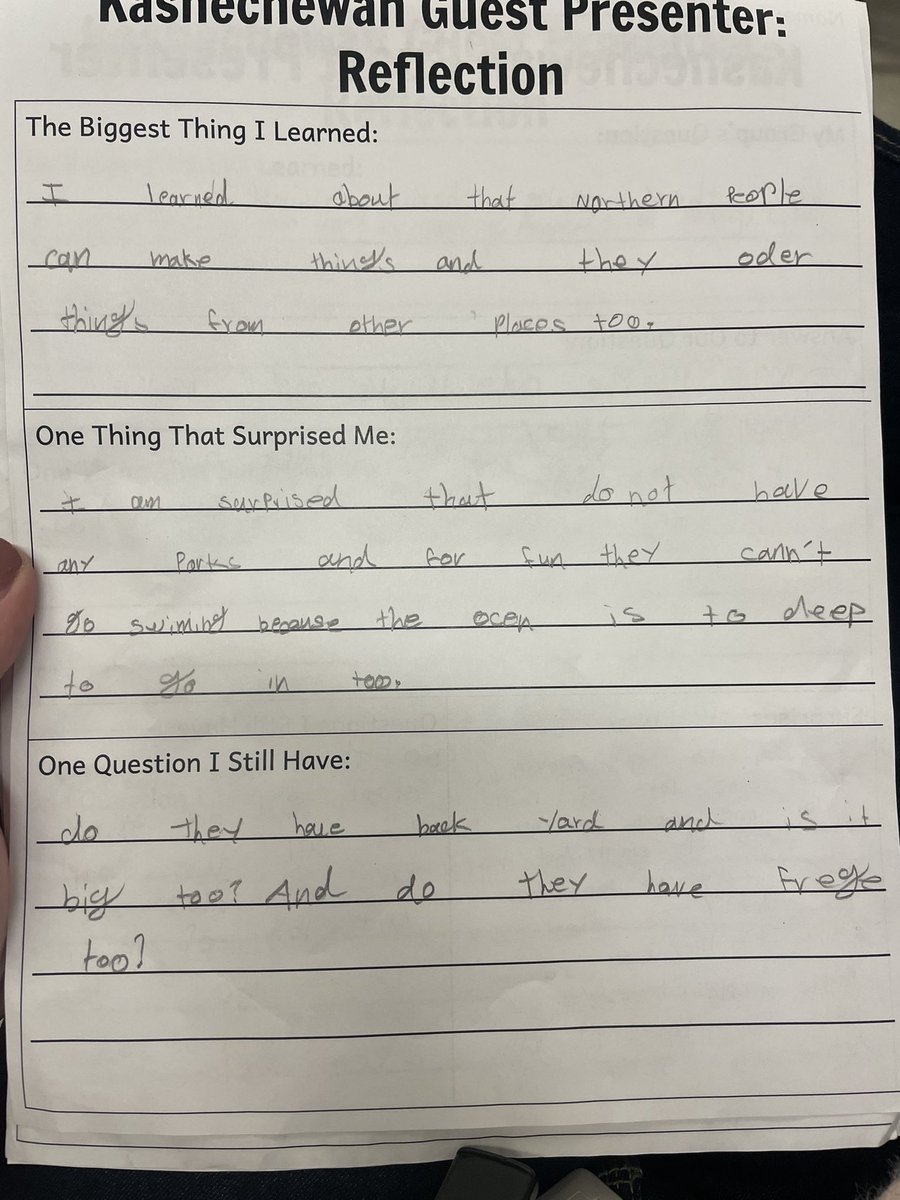 Kashechewan Guest Presenter:
Reflection
The Biggest Thing I Learned:
I learned about that Northern People
can make things and they oder
things from other places too.
One Thing That Surprised Me:
I am surprised that do not have
any Parks and for fun they cann't
go swiming because the ocen is to deep
to go in too.
One Question I Still Have:
do they have back yard and is it
big too? And do they have Frege
too?